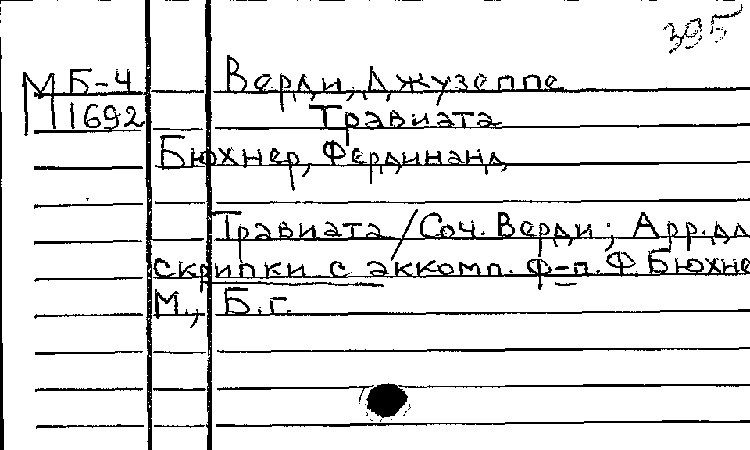 395
М Б-4 Верди, Джузеппе
11692 Травиата
Бюхнер, Фердинанд
Травиата / Соч. Верди; Арр. дл
скрипки с аккомп. ф-п. Ф. Бюхне
М., Б.г.